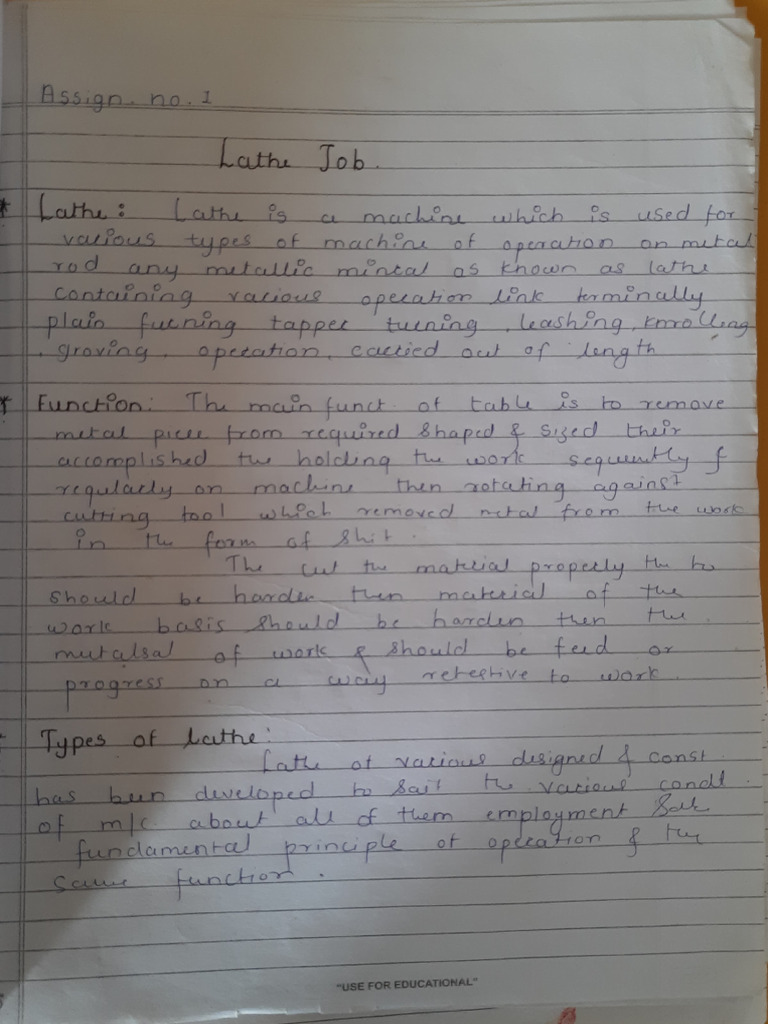 Assign. no. 1
Lathe Job.
* Lathe: Lathe is a machine which is used for
various types of machine of operation on metal
rod any metallic mintal as known as lathe
containing various operation link terminally
plain furning tapper turning, leashing, knrolling
, groving, operation, carried out of length
* Function: The main funct. of table is to remove
metal piece from required shaped & sized their
accomplished the holding the work sequently &
regularly on machine then rotating against
cutting tool which removed metal from the work
in the form of shit.
The cut the material properly the to
should be harder then material of the
work basis should be harden then the
mutalsal of work & should be feed or
progress on a way retective to work.
Types of Lathe:
Lathe of various designed & const
has been developed to sait the various condl.
of m/c. about all of them employment
fundamental principle of operation & the
same function.
"USE FOR EDUCATIONAL"